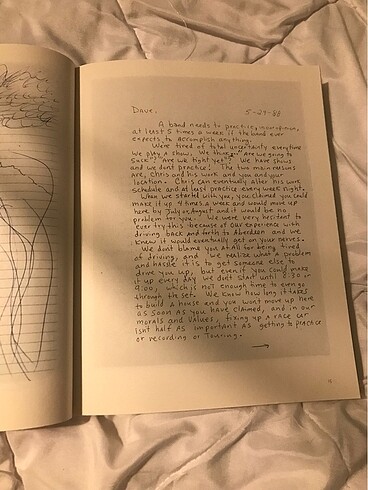 Dave, 5-29-88
A band needs to practice, in our opinion,
at least 5 times a week if the band ever
expects to accomplish anything.
We're tired of total uncertainty everytime
we play a show. We think "Are we going to
suck"? "Are we tight yet"? We have shows
and we dont practice! The two main reasons
are, Chris and his work and you and your
location. Chris can eventually alter his work
schedule and at least practice every week night.
When we started with you, you claimed you could
make it up 4 times a week and would move up
here by July or August and it would be no
problem for you. We were very hesitant to
ever try this because of our experience with
driving back and forth to Aberdeen and we
knew it would eventually get on your nerves.
We dont blame you at all for being tired
of driving, and we realize what a problem
and hassle it is to get someone else to
drive you up, but even if you could make
it up every day we dont start until 8:30 or
9:00, which is not enough time to even go
through the set. We know how long it takes
to build a house and you wont move up here
as soon as you have claimed, and in our
morals and values, fixing up a race car
isnt half as important as getting to practice
or recording or Touring.